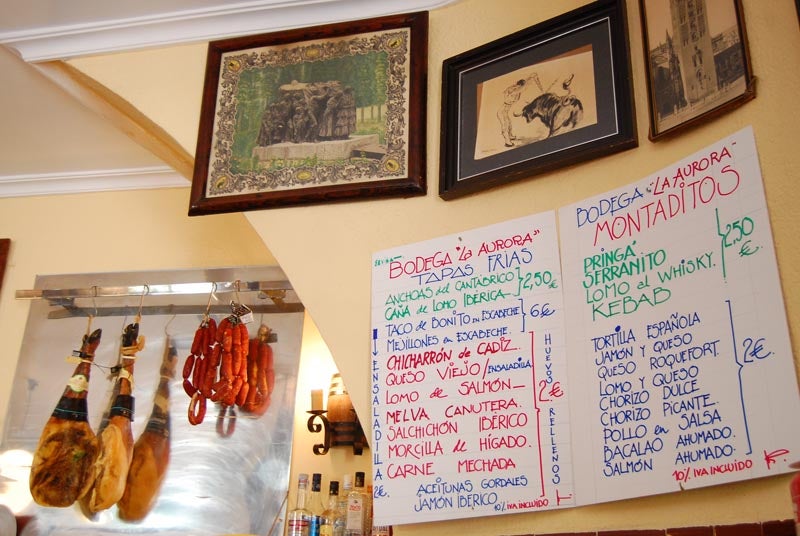 SEVILLA—
BODEGA "LA AURORA"
TAPAS FRÍAS
ANCHOAS del CANTÁBRICO
CAÑA DE LOMO IBERICA
2,50 €
TACO DE BONITO EN ESCABECHE
MEJILLONES EN ESCABECHE
6 €
CHICHARRÓN de CADIZ.
QUESO VIEJO/ENSALADILLA
LOMO DE SALMÓN—
MELVA CANUTERA.
SALCHICHÓN IBÉRICO
MORCILLA DE HÍGADO.
CARNE MECHADA
2 €
ACEITUNAS GORDALES
JAMÓN IBERICO
10% IVA INCLUIDO
ENSALADILLA 2€
HUEVOS RELLENOS
BODEGA "LA AURORA"
MONTADITOS
PRINGÁ
SERRANITO
LOMO al WHISKY.
KEBAB
2,50 €
TORTILLA ESPAÑOLA
JAMÓN Y QUESO
QUESO ROQUEFORT.
LOMO Y QUESO
CHORIZO DULCE
CHORIZO PICANTE.
POLLO en SALSA
BACALAO AHUMADO.
SALMÓN AHUMADO.
2 €
10% IVA INCLUIDO